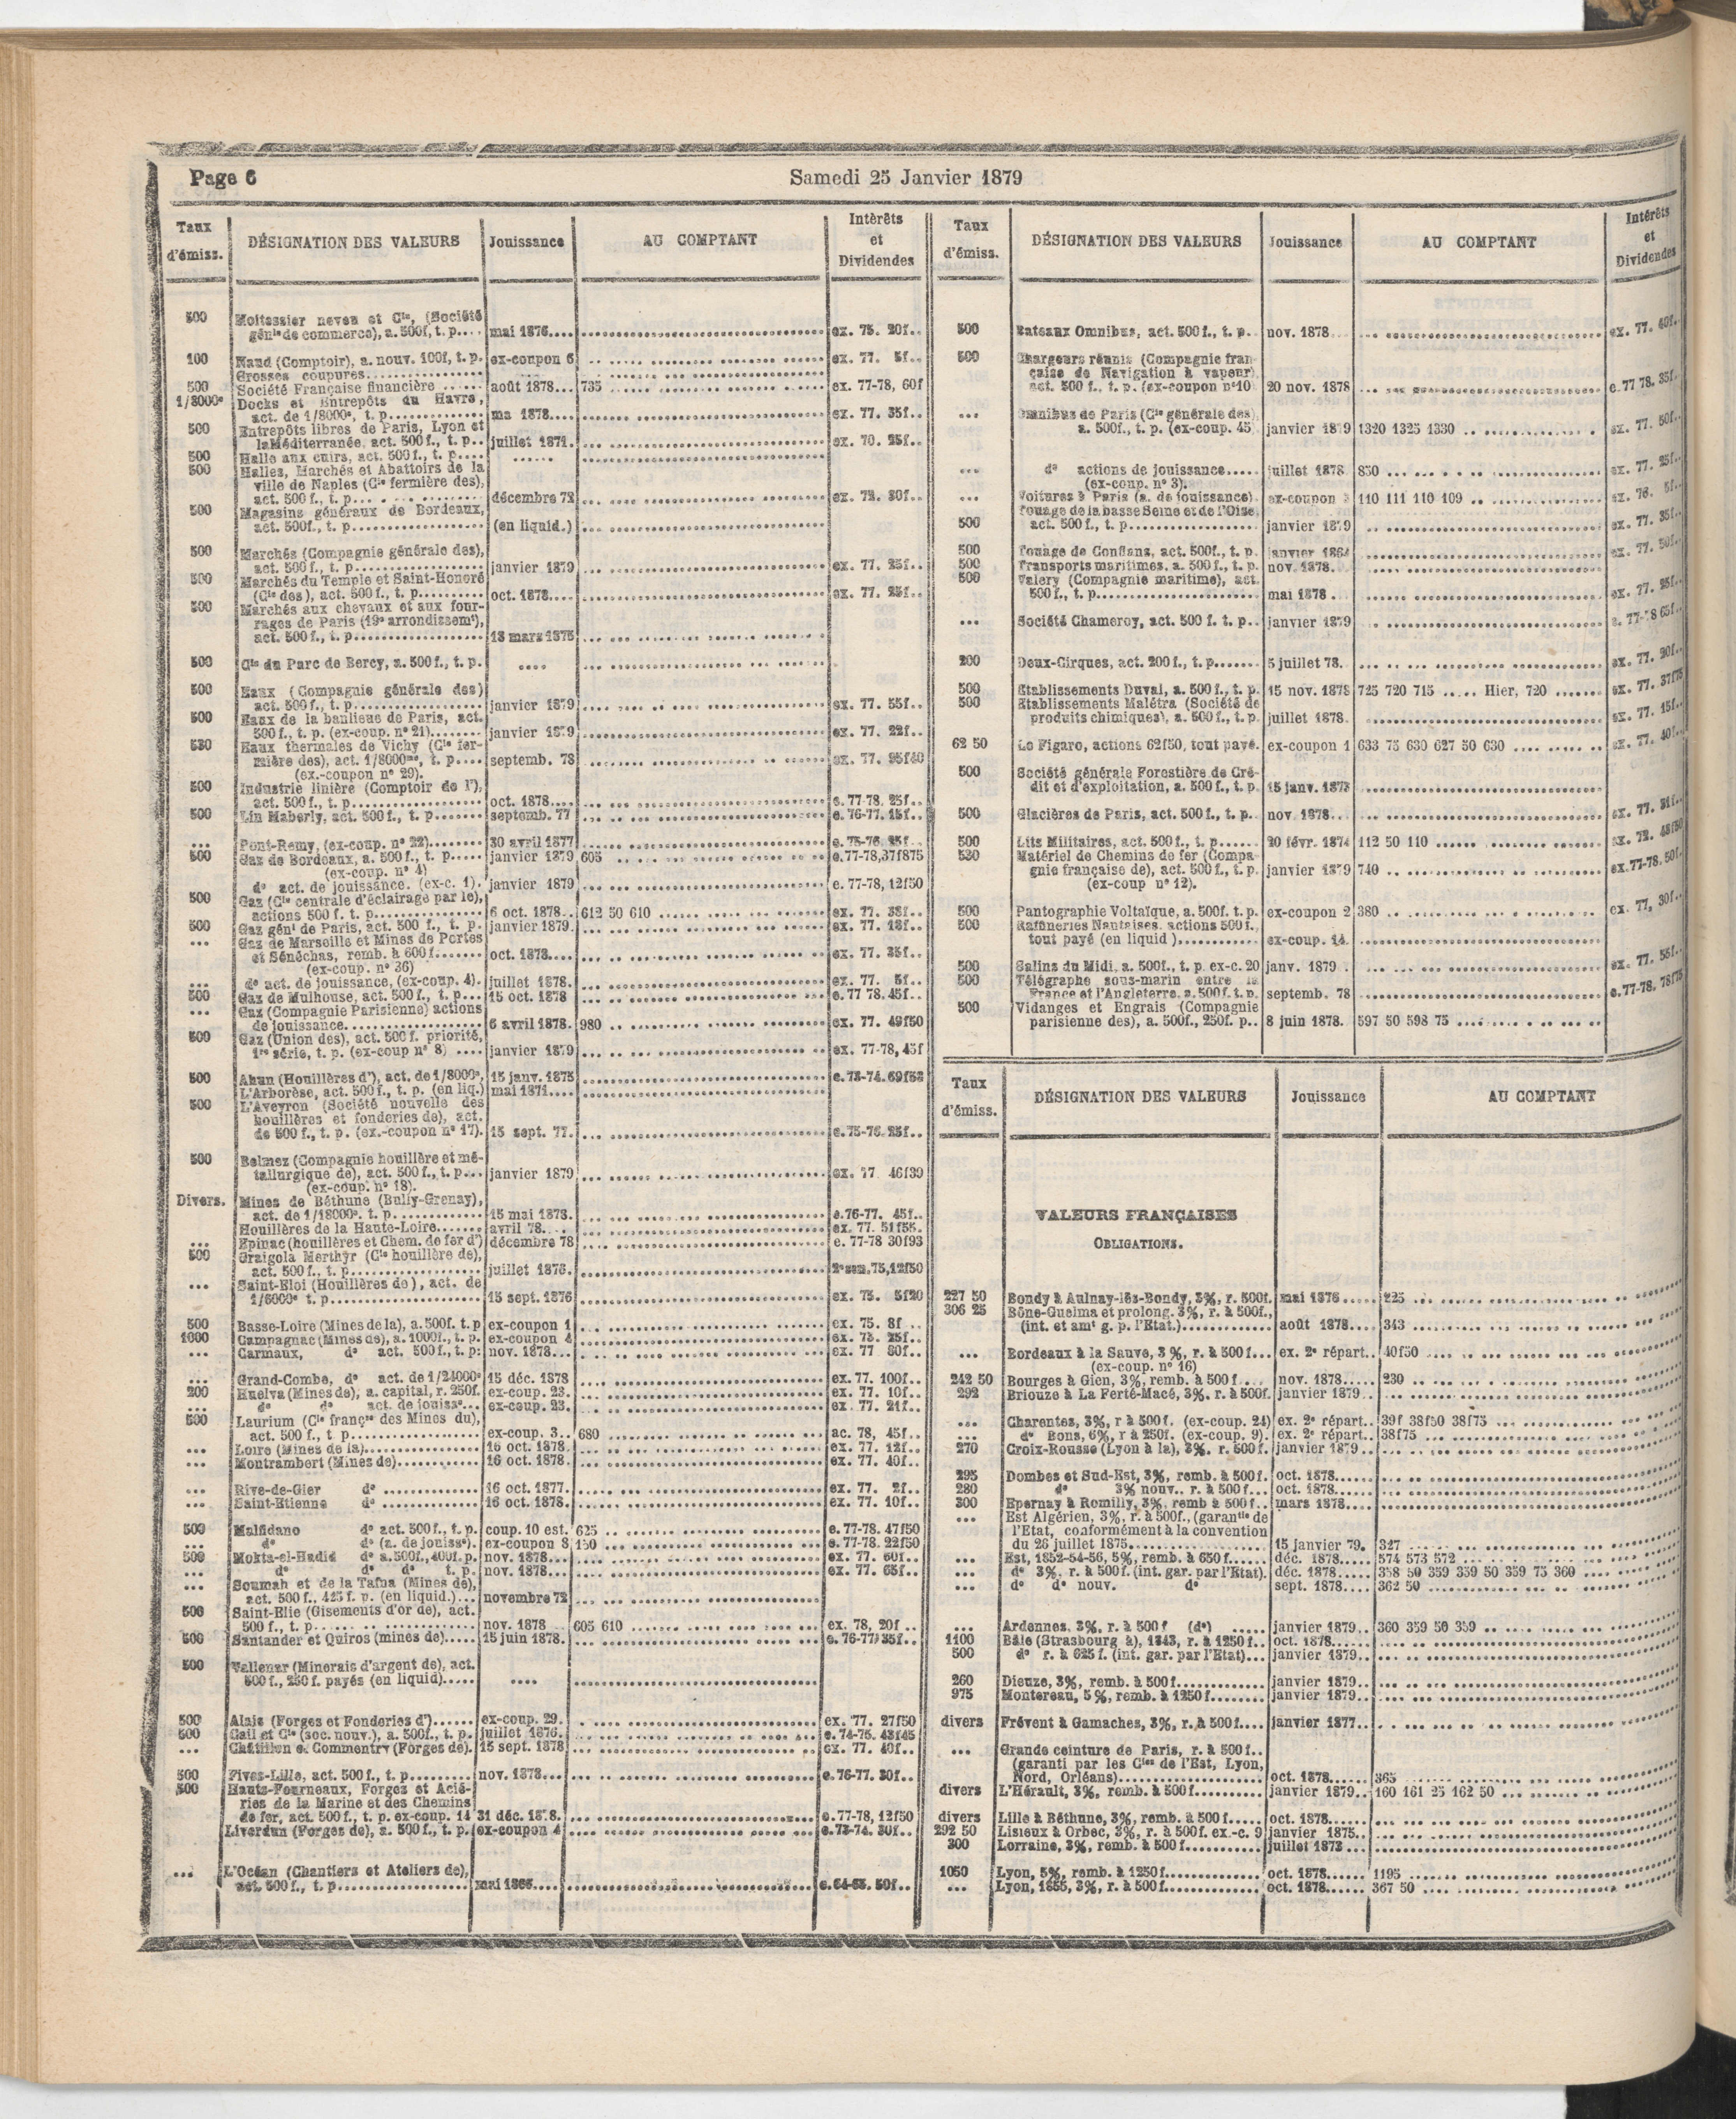 Page 6
Samedi 25 Janvier 1879
Taux d'émiss. DÉSIGNATION DES VALEURS Jouissance AU COMPTANT Intérêts et Dividendes
500 Moitessier neveu et Cie, (Société
génle de commerce), a. 500f, t. p.... mai 1876.... ex. 75. 20f..
100 Naud (Comptoir), a. nouv. 100f, t. p. ex-coupon 6 ex. 77. 5f..
Grosses coupures
500 Société Française financière août 1878... 735 ex. 77-78, 60f
1/8000e Docks et Entrepôts du Havre,
act. de 1/8000e, t. p. 1878.... ex. 77. 35f..
500 Entrepôts libres de Paris, Lyon et
la Méditerranée, act. 500f., t. p.. juillet 1871. ex. 70. 25f..
500 Halle aux cuirs, act. 500f., t. p.
500 Halles, Marchés et Abattoirs de la
ville de Naples (Cie fermière des),
act. 500f., t. p. décembre 72 ex. 72. 30f..
500 Magasins généraux de Bordeaux,
act. 500f., t. p. (en liquid.)
500 Marchés (Compagnie générale des),
act. 500f., t. p. janvier 1879 ex. 77. 25f..
500 Marchés du Temple et Saint-Honoré
(Cie des), act. 500f., t. p. oct. 1878.... ex. 77. 25f..
500 Marchés aux chevaux et aux four-
rages de Paris (19e arrondissemt),
act. 500f., t. p. 18 mars 1875
500 Cie du Parc de Bercy, a. 500f., t. p. ....
500 Eaux (Compagnie générale des)
act. 500f., t. p. janvier 1879 ex. 77. 55f..
500 Eaux de la banlieue de Paris, act.
500f., t. p. (ex-coup. n° 21) janvier 1879 ex. 77. 22f..
530 Eaux thermales de Vichy (Cie fer-
mière des), act. 1/8000me, t. p.... septemb. 78 ex. 77. 95f40
(ex.-coupon n° 29).
500 Industrie linière (Comptoir de l'),
act. 500f., t. p. oct. 1878.... e. 77-78, 25f..
500 Lin Maberly, act. 500f., t. p. septemb. 77 e. 76-77. 15f..
... Pont-Remy, (ex-coup. n° 22) 30 avril 1877 e. 75-76. 25f..
500 Gaz de Bordeaux, a. 500f., t. p. janvier 1879 605 e.77-78,37f875
(ex-coup. n° 4)
do act. de jouissance. (ex-c. 1). janvier 1879 e. 77-78, 12f50
500 Gaz (Cie centrale d'éclairage par le),
actions 500 f. t. p. 6 oct. 1878.. 612 50 610 ex. 77. 38f..
500 Gaz génl de Paris, act. 500 f., t. p. janvier 1879. ex. 77. 18f..
... Gaz de Marseille et Mines de Portes
et Sénéchas, remb. à 600f. oct. 1878.... ex. 77. 35f..
(ex-coup. n° 36)
... do act. de jouissance, (ex-coup. 4). juillet 1878. ex. 77. 5f..
500 Gaz de Mulhouse, act. 500f., t. p... 15 oct. 1878 e. 77 78. 45f..
... Gaz (Compagnie Parisienne) actions
de jouissance 6 avril 1878. 980 ex. 77. 49f50
500 Gaz (Union des), act. 500f. priorité,
1re série, t. p. (ex-coup n° 8) janvier 1879 ex. 77-78, 45f
500 Ahun (Houillères d'), act. de 1/8000e, 15 janv. 1875 e.73-74.69f53
L'Arborèse, act. 500f., t. p. (en liq.) mai 1871....
500 L'Aveyron (Société nouvelle des
houillères et fonderies de), act.
de 500f., t. p. (ex.-coupon n° 17). 15 sept. 77. e.75-76. 25f..
500 Belmez (Compagnie houillère et mé-
tallurgique de), act. 500f., t. p... janvier 1879 ex. 77 46f39
(ex-coup. n° 18).
Divers. Mines de Béthune (Bully-Grenay),
act. de 1/18000e. t. p. 15 mai 1878. e.76-77. 45f..
Houillères de la Haute-Loire avril 78. ex. 77. 51f55.
... Epinac (houillères et Chem. de fer d') décembre 78 e. 77-78 30f93
500 Graigola Merthyr (Cie houillère de),
act. 500f., t. p. juillet 1876. 2e sem.75,12f50
... Saint-Eloi (Houillères de), act. de
1/6000e t. p. 15 sept. 1876 ex. 75. 5f20
500 Basse-Loire (Mines de la), a. 500f. t. p ex-coupon 1 ex. 75. 8f..
1000 Campagnac (Mines de), a. 1000f., t. p. ex-coupon 4 ex. 73. 25f..
... Carmaux, do act. 500f., t. p: nov. 1878... ex. 77 80f..
... Grand-Combe, do act. de 1/24000e 15 déc. 1878 ex. 77. 100f..
200 Huelva (Mines de), a. capital, r. 250f. ex-coup. 23. ex. 77. 10f..
... do do act. de jouisse... ex-coup. 23. ex. 77. 21f..
500 Laurium (Cie françse des Mines du),
act. 500f., t p. ex-coup. 3.. 680 ac. 78, 45f..
... Loire (Mines de la) 16 oct. 1878. ex. 77. 12f..
... Montrambert (Mines de) 16 oct. 1878. ex. 77. 40f..
... Rive-de-Gier do 16 oct. 1877. ex. 77. 2f..
... Saint-Etienne do 16 oct. 1878. ex. 77. 10f..
500 Malfidano do act. 500f., t. p. coup. 10 est. 625 e. 77-78. 47f50
... do do (a. de jouisse). ex-coupon 8 150 e. 77-78. 22f50
500 Mokta-el-Hadid do a. 500f., 400f. p. nov. 1878... ex. 77. 60f..
... do do do t. p. nov. 1878... ex. 77. 65f..
... Soumah et de la Tafna (Mines de),
act. 500f., 425 f. p. (en liquid.)... novembre 72
500 Saint-Elie (Gisements d'or de), act.
500 f., t. p. nov. 1878 605 610 ex. 78, 20f..
500 Santander et Quiros (mines de) 15 juin 1878. e. 76-77, 35f..
500 Vallenar (Minerais d'argent de), act.
500 f., 250 f. payés (en liquid) ....
500 Alais (Forges et Fonderies d') ex-coup. 29. ex. 77. 27f50
600 Cail et Cie (soc. nouv.), a. 500f., t. p. juillet 1876. e. 74-75. 43f45
... Châtillon et Commentry (Forges de). 15 sept. 1878 ex. 77. 40f..
500 Fives-Lille, act. 500f., t. p. nov. 1878... e.76-77. 30f..
500 Hauts-Fourneaux, Forges et Acié-
ries de la Marine et des Chemins
de fer, act. 500f., t. p. ex-coup. 14 31 déc. 1878. e. 77-78, 12f50
Liverdun (Forges de), a. 500f., t. p. ex-coupon 4 e.73-74. 30f..
... L'Océan (Chantiers et Ateliers de),
act. 500f., t. p. mai 1866 e.64-65. 50f..
Taux d'émiss. DÉSIGNATION DES VALEURS Jouissance AU COMPTANT Intérêts et Dividendes
500 Bateaux Omnibus, act. 500f., t. p. nov. 1878 ex. 77. 40f..
500 Chargeurs réunis (Compagnie fran-
çaise de Navigation à vapeur)
act. 500 f., t. p. (ex-coupon n° 10 20 nov. 1878 e.77 78. 35f.
... Omnibus de Paris (Cie générale des)
a. 500f., t. p. (ex-coup. 45) janvier 1879 1320 1325 1330 ex. 77. 50f..
... do actions de jouissance juillet 1878 850 ex. 77. 25f..
(ex-coup. n° 3).
... Voitures à Paris (a. de jouissance) ex-coupon 110 111 110 109 ex. 76. 5f..
Touage de la basse Seine et de l'Oise
500 act. 500 f., t. p. janvier 1879 ex. 77. 35f..
500 Touage de Conflans, act. 500f., t. p. janvier 1864 ex. 77. 50f..
500 Transports maritimes, a. 500 f., t. p. nov. 1878.
500 Valery (Compagnie maritime), act.
500f., t. p. mai 1878. ex. 77. 25f..
... Société Chameroy, act. 500 f. t. p.. janvier 1879 e. 77-78 65f..
200 Deux-Cirques, act. 200f., t. p. 5 juillet 78. ex. 77. 20f..
500 Etablissements Duval, a. 500 f., t. p. 15 nov. 1878 725 720 715 ..... Hier, 720 ex. 77. 37f75
500 Etablissements Malétra (Société de
produits chimiques), a. 500 f., t. p. juillet 1878. ex. 77. 15f..
62 50 Le Figaro, actions 62f50, tout payé. ex-coupon 1 633 75 630 627 50 630 ex. 77. 40f..
500 Société générale Forestière de Cré-
dit et d'exploitation, a. 500 f., t. p. 15 janv. 1873
500 Glacières de Paris, act. 500f., t. p. nov. 1878 ex. 77. 31f..
500 Lits Militaires, act. 500f., t. p. 20 févr. 1874 112 50 110 ex. 72. 48f50
530 Matériel de Chemins de fer (Compa-
gnie française de), act. 500f., t. p. janvier 1879 740 ex.77-78. 50f.
(ex-coup n° 12).
500 Pantographie Voltaïque, a. 500f. t. p. ex-coupon 2 380 ex. 77, 30f..
500 Raffineries Nantaises, actions 500f.
tout payé (en liquid) ex-coup. 14
500 Salins du Midi, a. 500f., t. p. ex-c. 20 janv. 1879 ex. 77. 55f..
500 Télégraphe sous-marin entre la
France et l'Angleterre, a. 500 f. t. p. septemb. 78 e.77-78. 78f75
500 Vidanges et Engrais (Compagnie
parisienne des), a. 500f., 250f. p.. 8 juin 1878. 597 50 598 75
Taux d'émiss. DÉSIGNATION DES VALEURS Jouissance AU COMPTANT
VALEURS FRANÇAISES
OBLIGATIONS.
227 50 Bondy à Aulnay-lès-Bondy, 3%, r. 500f. mai 1876 225
306 25 Bône-Guelma et prolong. 3%, r. à 500f.,
(int. et amt g. p. l'Etat.) août 1878.... 343
... Bordeaux à la Sauve, 3%, r. à 500 f... ex. 2e répart.. 40f50
(ex-coup. n° 16)
242 50 Bourges à Gien, 3%, remb. à 500 f.... nov. 1878.... 230
292 Briouze à La Ferté-Macé, 3%. r. à 500f. janvier 1879..
... Charentes, 3%, r à 500 f. (ex-coup. 24) ex. 2e répart.. 39f 38f50 38f75
... do Bons, 6%, r à 250f. (ex-coup. 9). ex. 2e répart.. 38f75
270 Croix-Rousse (Lyon à la), 3%. r. 500 f. janvier 1879..
295 Dombes et Sud-Est, 3%, remb. à 500 f. oct. 1878
280 do 3% nouv.. r. à 500 f... oct. 1878
300 Epernay à Romilly, 3%, remb à 500 f.. mars 1878....
... Est Algérien, 3%, r. à 500f., (garantie de
l'Etat, conformément à la convention
du 26 juillet 1875 15 janvier 79. 327
... Est, 1852-54-56, 5%, remb. à 650 f. déc. 1878 574 573 572
... do 3%, r. à 500 f. (int. gar. par l'Etat). déc. 1878 358 50 359 359 50 359 75 360
... do do nouv. do sept. 1878.... 362 50
... Ardennes, 3%, r. à 500 f (do) janvier 1879.. 360 359 50 359
1100 Bâle (Strasbourg à), 1843, r. à 1250 f.. oct. 1878
500 do r. à 625 f. (int. gar. par l'Etat)... janvier 1879..
260 Dieuze, 3%, remb. à 500 f. janvier 1879..
975 Montereau, 5%, remb. à 1250 f. janvier 1879..
divers Frévent à Gamaches, 3%, r. à 500 f.... janvier 1877..
... Grande ceinture de Paris, r. à 500 f..
(garanti par les Cies de l'Est, Lyon,
Nord, Orléans) oct. 1878 365
divers L'Hérault, 3%, remb. à 500 f. janvier 1879.. 160 161 25 162 50
divers Lille à Béthune, 3%, remb. à 500 f. oct. 1878
292 50 Lisieux à Orbec, 3%, r. à 500f. ex.-c. 9 janvier 1875.
300 Lorraine, 3%, remb. à 500 f. juillet 1873
1050 Lyon, 5%, remb. à 1250 f. oct. 1878 1195
... Lyon, 1855, 3%, r. à 500 f. oct. 1878 367 50